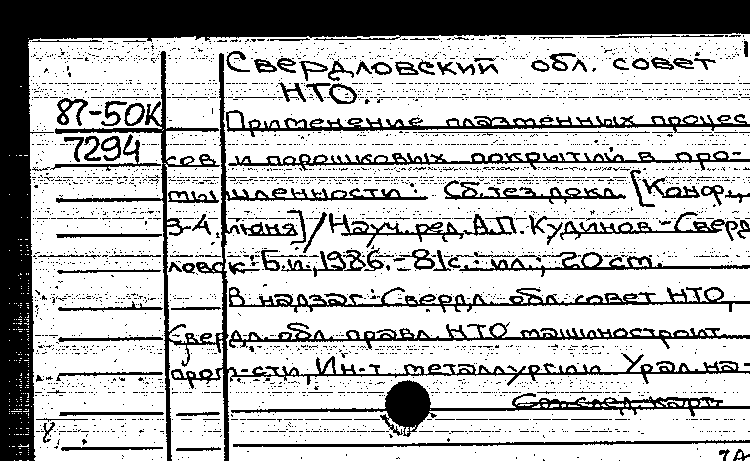 Свердловский обл. совет
НТО..
87-50К
Применение плазменных процес
7294
сов и порошковых покрытий в про-
мышленности: Сб. тез. докл. [Конф.,
3-4 июня] / Науч. ред. А.П. Кудинов - Сверд
ловск: Б.и., 1986. - 81с.: ил.; 20 см.
В надзаг: Свердл. обл. совет НТО,
Свердл. обл. правл. НТО машиностроит.
пром-сти, Ин-т металлургии Урал. на-
См. след. карт.